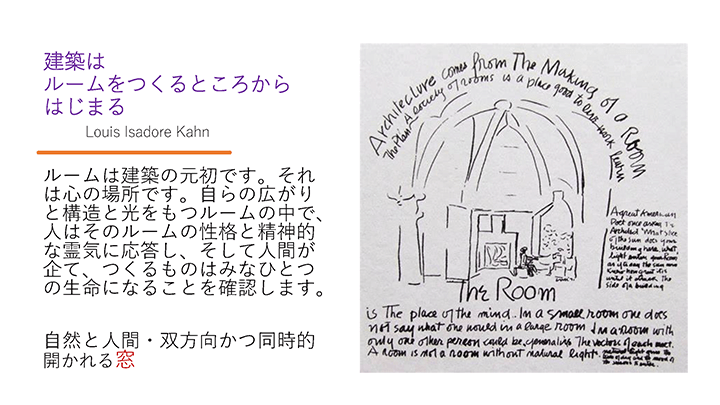 建築は
ルームをつくるところから
はじまる
Louis Isadore Kahn
ルームは建築の元初です。それ
は心の場所です。自らの広がり
と構造と光をもつルームの中で、
人はそのルームの性格と精神的
な霊気に応答し、そして人間が
企て、つくるものはみなひとつ
の生命になることを確認します。
自然と人間・双方向かつ同時的
開かれる窓
Architecture comes from The Making of a Room
The Plan A society of rooms is a place good to live work learn
A great American
Poet once asked The
Architect What slice
of the sun does your
building have. What
light enters your room
as if to say the sun never
knew how great it is
until it struck the
side of a building
The Room
is The place of the mind. In a small room one does
not say what one would in a large room In a room with
only one other person could be generative The vectors of each meet.
A room is not a room without natural light.